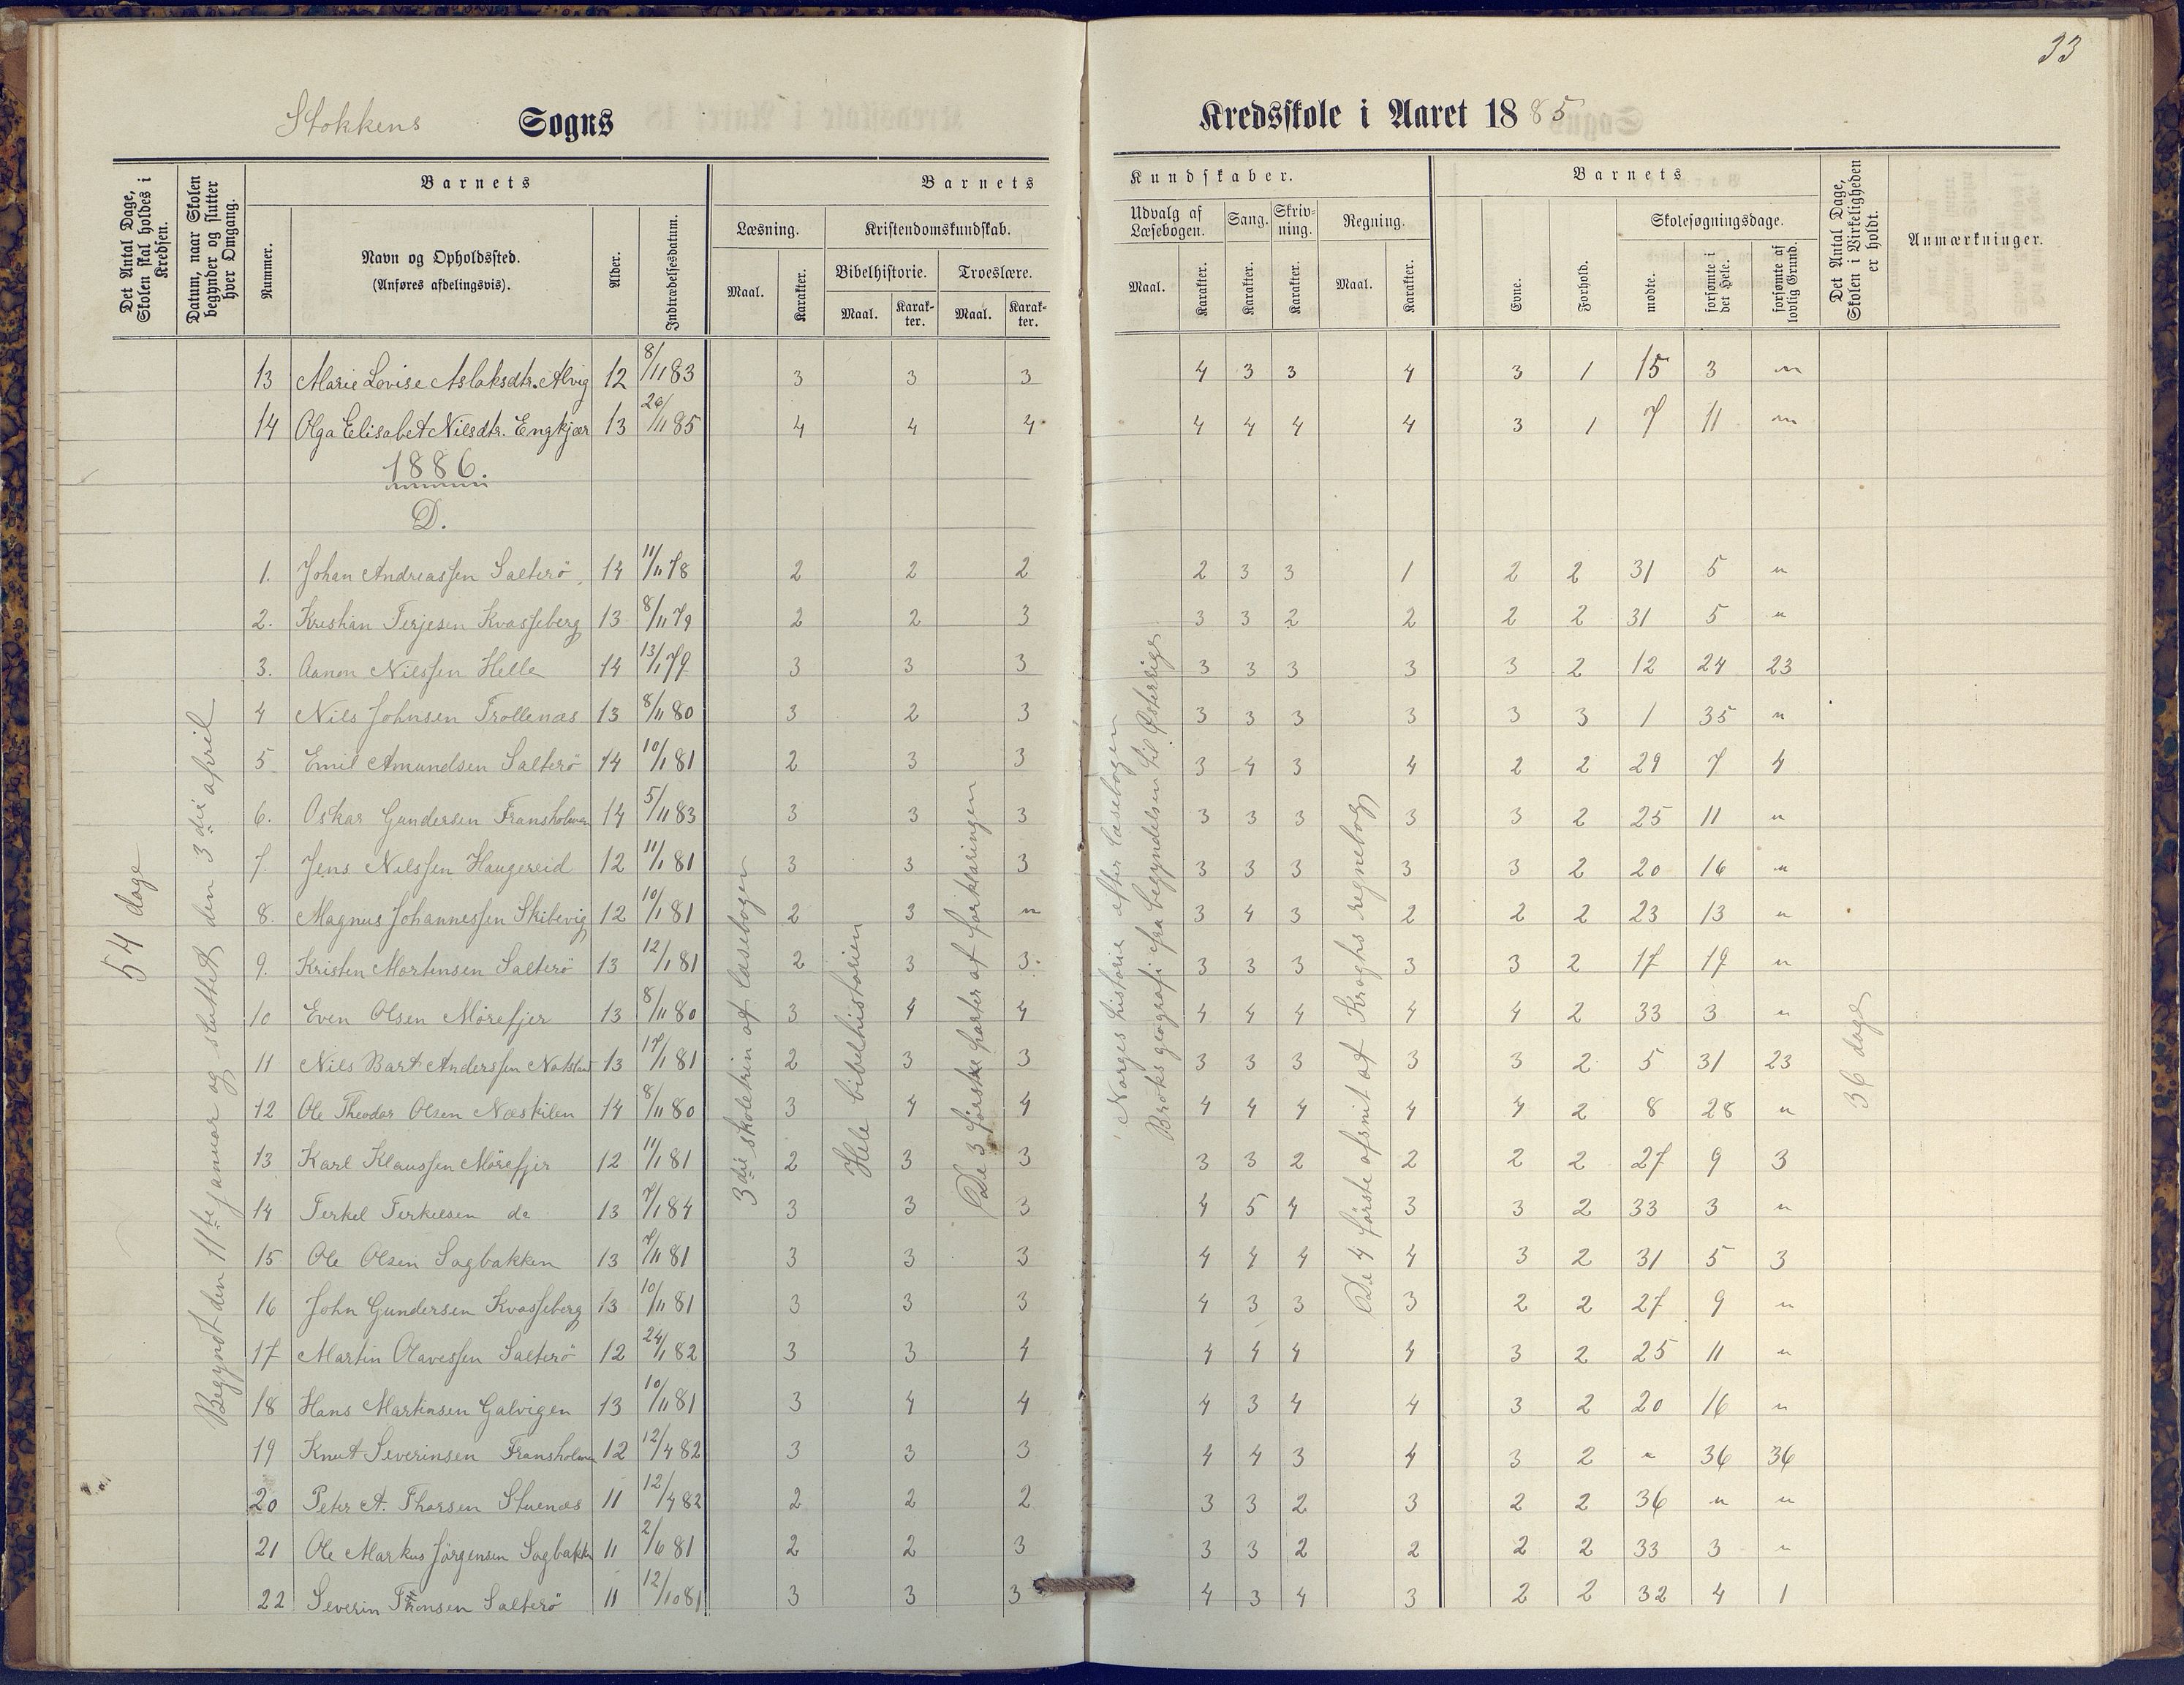 33
Stokkens Sogns Kredsskole i Aaret 1885
Det Antal Dage, Skolen skal holdes i Kredsen.
Datum, naar Skolen begynder og slutter hver Omgang.
Barnets
Nummer.
Navn og Opholdssted.
(Anføres afdelingsvis).
Alder.
Indtrædelsesdatum.
Barnets Kundskaber.
Læsning.
Maal.
Karakter.
Kristendomskundskab.
Bibelhistorie.
Maal.
Karakter.
Troeslære.
Maal.
Karakter.
Udvalg af Læsebogen.
Maal.
Karakter.
Sang.
Karakter.
Skrivning.
Karakter.
Regning.
Maal.
Karakter.
Barnets
Evne.
Forhold.
Skolesøgningsdage.
mødte.
forsømte i det Hele.
forsømte af lovlig Grund.
Det Antal Dage, Skolen i Virkeligheden er holdt.
Anmærkninger.
13 Marie Lovise Aslaksdtr. Alvig 12 8/11 83 3 3 3 4 3 3 4 3 1 15 3 "
14 Olga Elisabet Nilsdtr. Engkjær 13 26/11 85 4 4 4 4 4 4 4 3 1 7 11 "
1886.
D.
1. Johan Andreassen Salterö 14 11/11 78 2 2 2 2 3 3 1 2 2 31 5 "
2. Kristian Terjesen Kvasseberg 13 8/11 79 2 2 3 3 3 2 2 2 2 31 5 "
3. Aanon Nilssen Helle 14 13/1 79 3 3 3 3 3 3 3 3 2 12 24 23
4 Nils Johnsen Trollenæs 13 8/11 80 3 2 3 3 3 3 3 3 3 1 35 "
5 Emil Amundsen Salterö 14 10/1 81 2 3 3 3 4 3 4 2 2 29 7 4
6. Oskar Gundersen Fransholmen 14 5/11 83 3 3 3 3 3 3 3 3 2 25 11 "
7. Jens Nilssen Haugereid 12 11/1 81 3 3 3 3 3 3 3 3 2 20 16 "
8. Magnus Johannessen Skibevig 12 10/1 81 2 3 " 3 4 3 2 2 2 23 13 "
9. Kristen Mortensen Salterö 13 12/1 81 2 3 3 3 3 3 3 3 2 17 19 "
10 Even Olsen Mörefjer 13 8/11 80 3 4 4 4 4 4 4 4 2 33 3 "
11 Nils Bart Anderssen 13 17/1 81 2 3 3 3 3 3 3 3 2 5 31 23
12 Ole Theodor Olsen Næskilen 14 8/11 80 3 4 4 4 4 4 4 4 2 8 28 "
13 Karl Klaussen Mörefjer 12 11/1 81 2 3 3 3 3 2 2 2 2 27 9 3
14 Terkel Terkelsen do 13 7/1 84 3 3 3 4 5 4 3 3 2 33 3 "
15 Ole Olsen Sagbakken 13 7/11 81 3 3 3 4 4 4 4 3 2 31 5 3
16 John Gundersen Kvasseberg 13 10/11 81 3 3 3 4 3 3 3 2 2 27 9 "
17 Martin Olavessen Salterö 12 24/1 82 3 3 4 4 4 4 4 3 2 25 11 "
18 Hans Martinsen Galvigen 13 10/11 81 3 4 4 4 3 4 4 3 2 20 16 "
19 Knut Severinsen Fransholmen 12 12/4 82 3 3 3 4 4 3 4 3 2 " 36 36
20 Peter A. Thorsen Stuenæs 11 12/4 82 2 2 2 3 3 2 3 2 2 36 " "
21 Ole Markus Jörgensen Sagbakken 11 2/6 81 2 2 3 3 3 2 2 2 2 33 3 "
22 Severin Salterö 11 12/10 81 3 3 3 4 3 4 3 2 2 32 4 1
54 dage
Begyndt den 11te januar og sluttet den 3die april
3die skoletrin af læsebogen
Hele bibelhistorien
De 3 første parter af forklaringen
Norges historie efter læsebogen
Broks geografi fra begyndelsen til Østerrige
De 4 første afsnit af Kroghs regnebog
36 dage